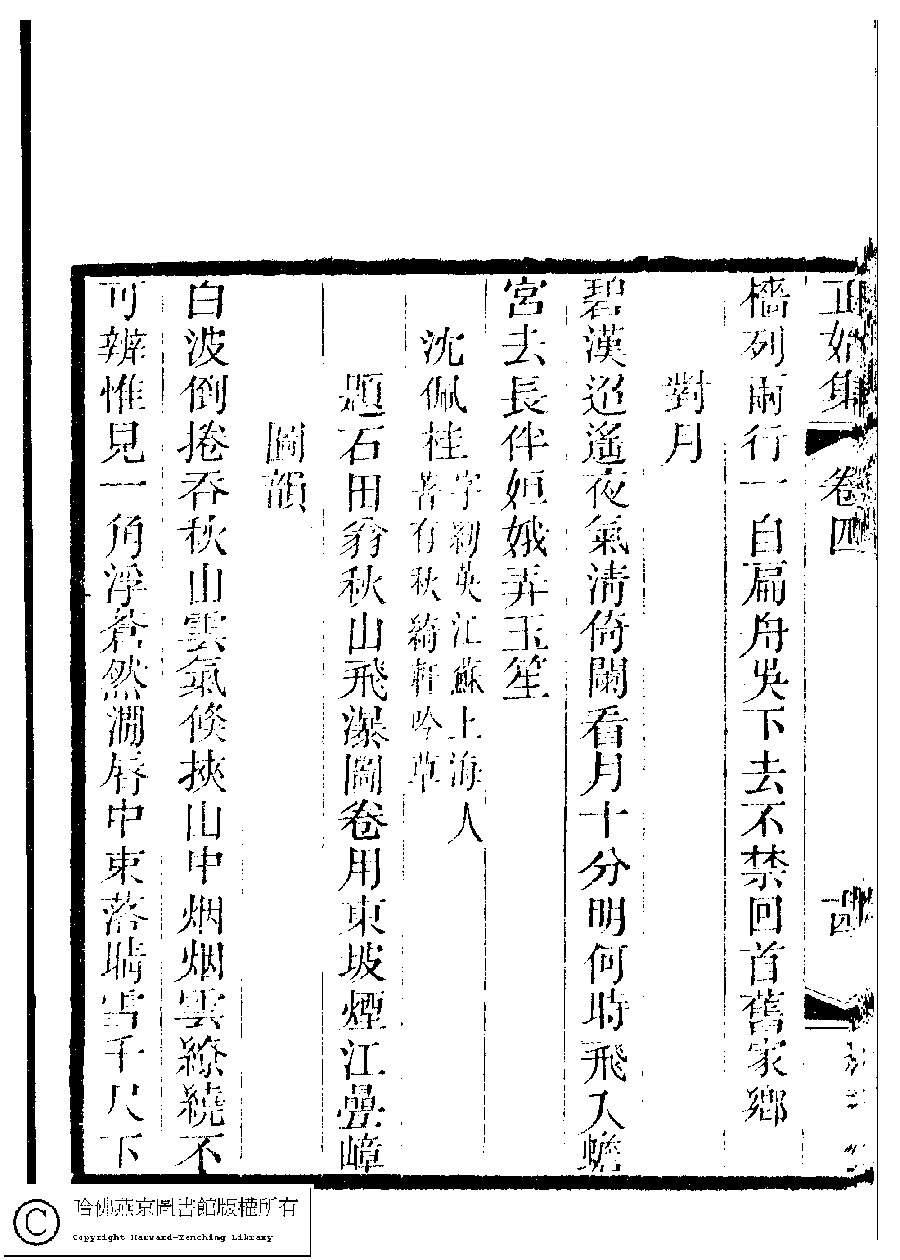 正始集 卷四 十四
檣列兩行一自扁舟吳下去不禁回首舊家鄉
對月
碧漢迢遙夜氣淸倚闌看月十分明何時飛入蟾
宮去長伴姮娥弄玉笙
沈佩桂字紉英江蘇上海人
著有秋綺軒吟草
題石田翁秋山飛瀑圖卷用東坡煙江疊嶂
圖韻
白波倒捲吞秋山雲氣倏挾山中烟烟雲繚繞不
可辨惟見一角浮蒼然澗唇中東落晴雪千尺下
哈佛燕京圖書館版權所有
Copyright Harvard-Yenching Library